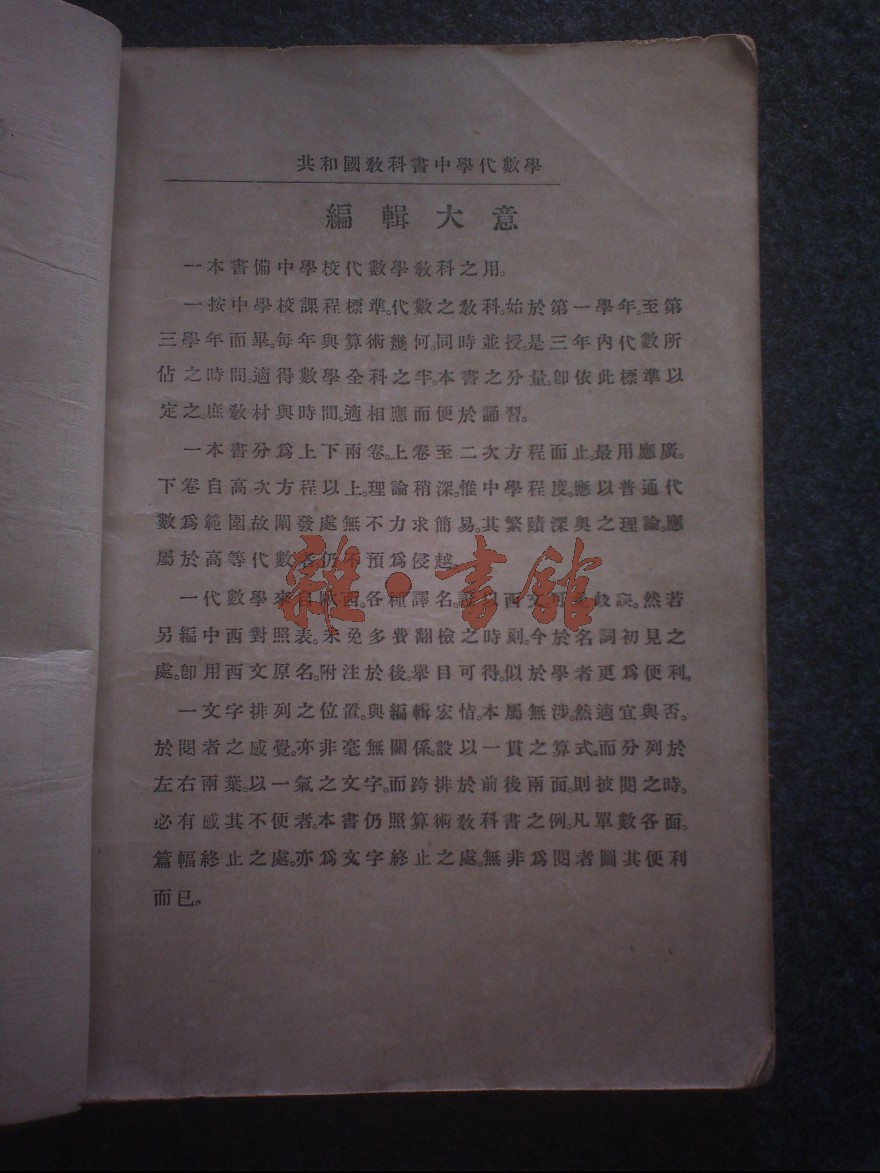 共和國敎科書中學代數學
編輯大意
一本書備中學校代數學敎科之用。
一按中學校課程標準。代數之敎科。始於第一學年。至第
三學年而畢。每年與算術幾何。同時並授。是三年內代數所
佔之時間。適得數學全科之半。本書之分量。卽依此標準以
定之。庶敎材與時間。適相應而便於誦習。
一本書分爲上下兩卷。上卷至二次方程而止。最用應廣。
下卷自高次方程以上。理論稍深。惟中學程度。應以普通代
數爲範圍。故闡發處無不力求簡易。其繁賾深奧之理論。應
屬於高等代數者。仍不預爲侵越。
一代數學來自歐西。各種譯名。以西文可免歧誤。然若
另編中西對照表。未免多費翻檢之時刻。今於名詞初見之
處。卽用西文原名。附注於後。舉目可得。似於學者更爲便利。
一文字排列之位置。與編輯宏恉。本屬無涉。然適宜與否。
於閱者之感覺。亦非毫無關係。設以一貫之算式。而分列於
左右兩葉。以一氣之文字。而跨排於前後兩面。則披閱之時。
必有感其不便者。本書仍照算術敎科書之例。凡單數各面。
篇幅終止之處。亦爲文字終止之處。無非爲閱者圖其便利
而已。
雜·書館